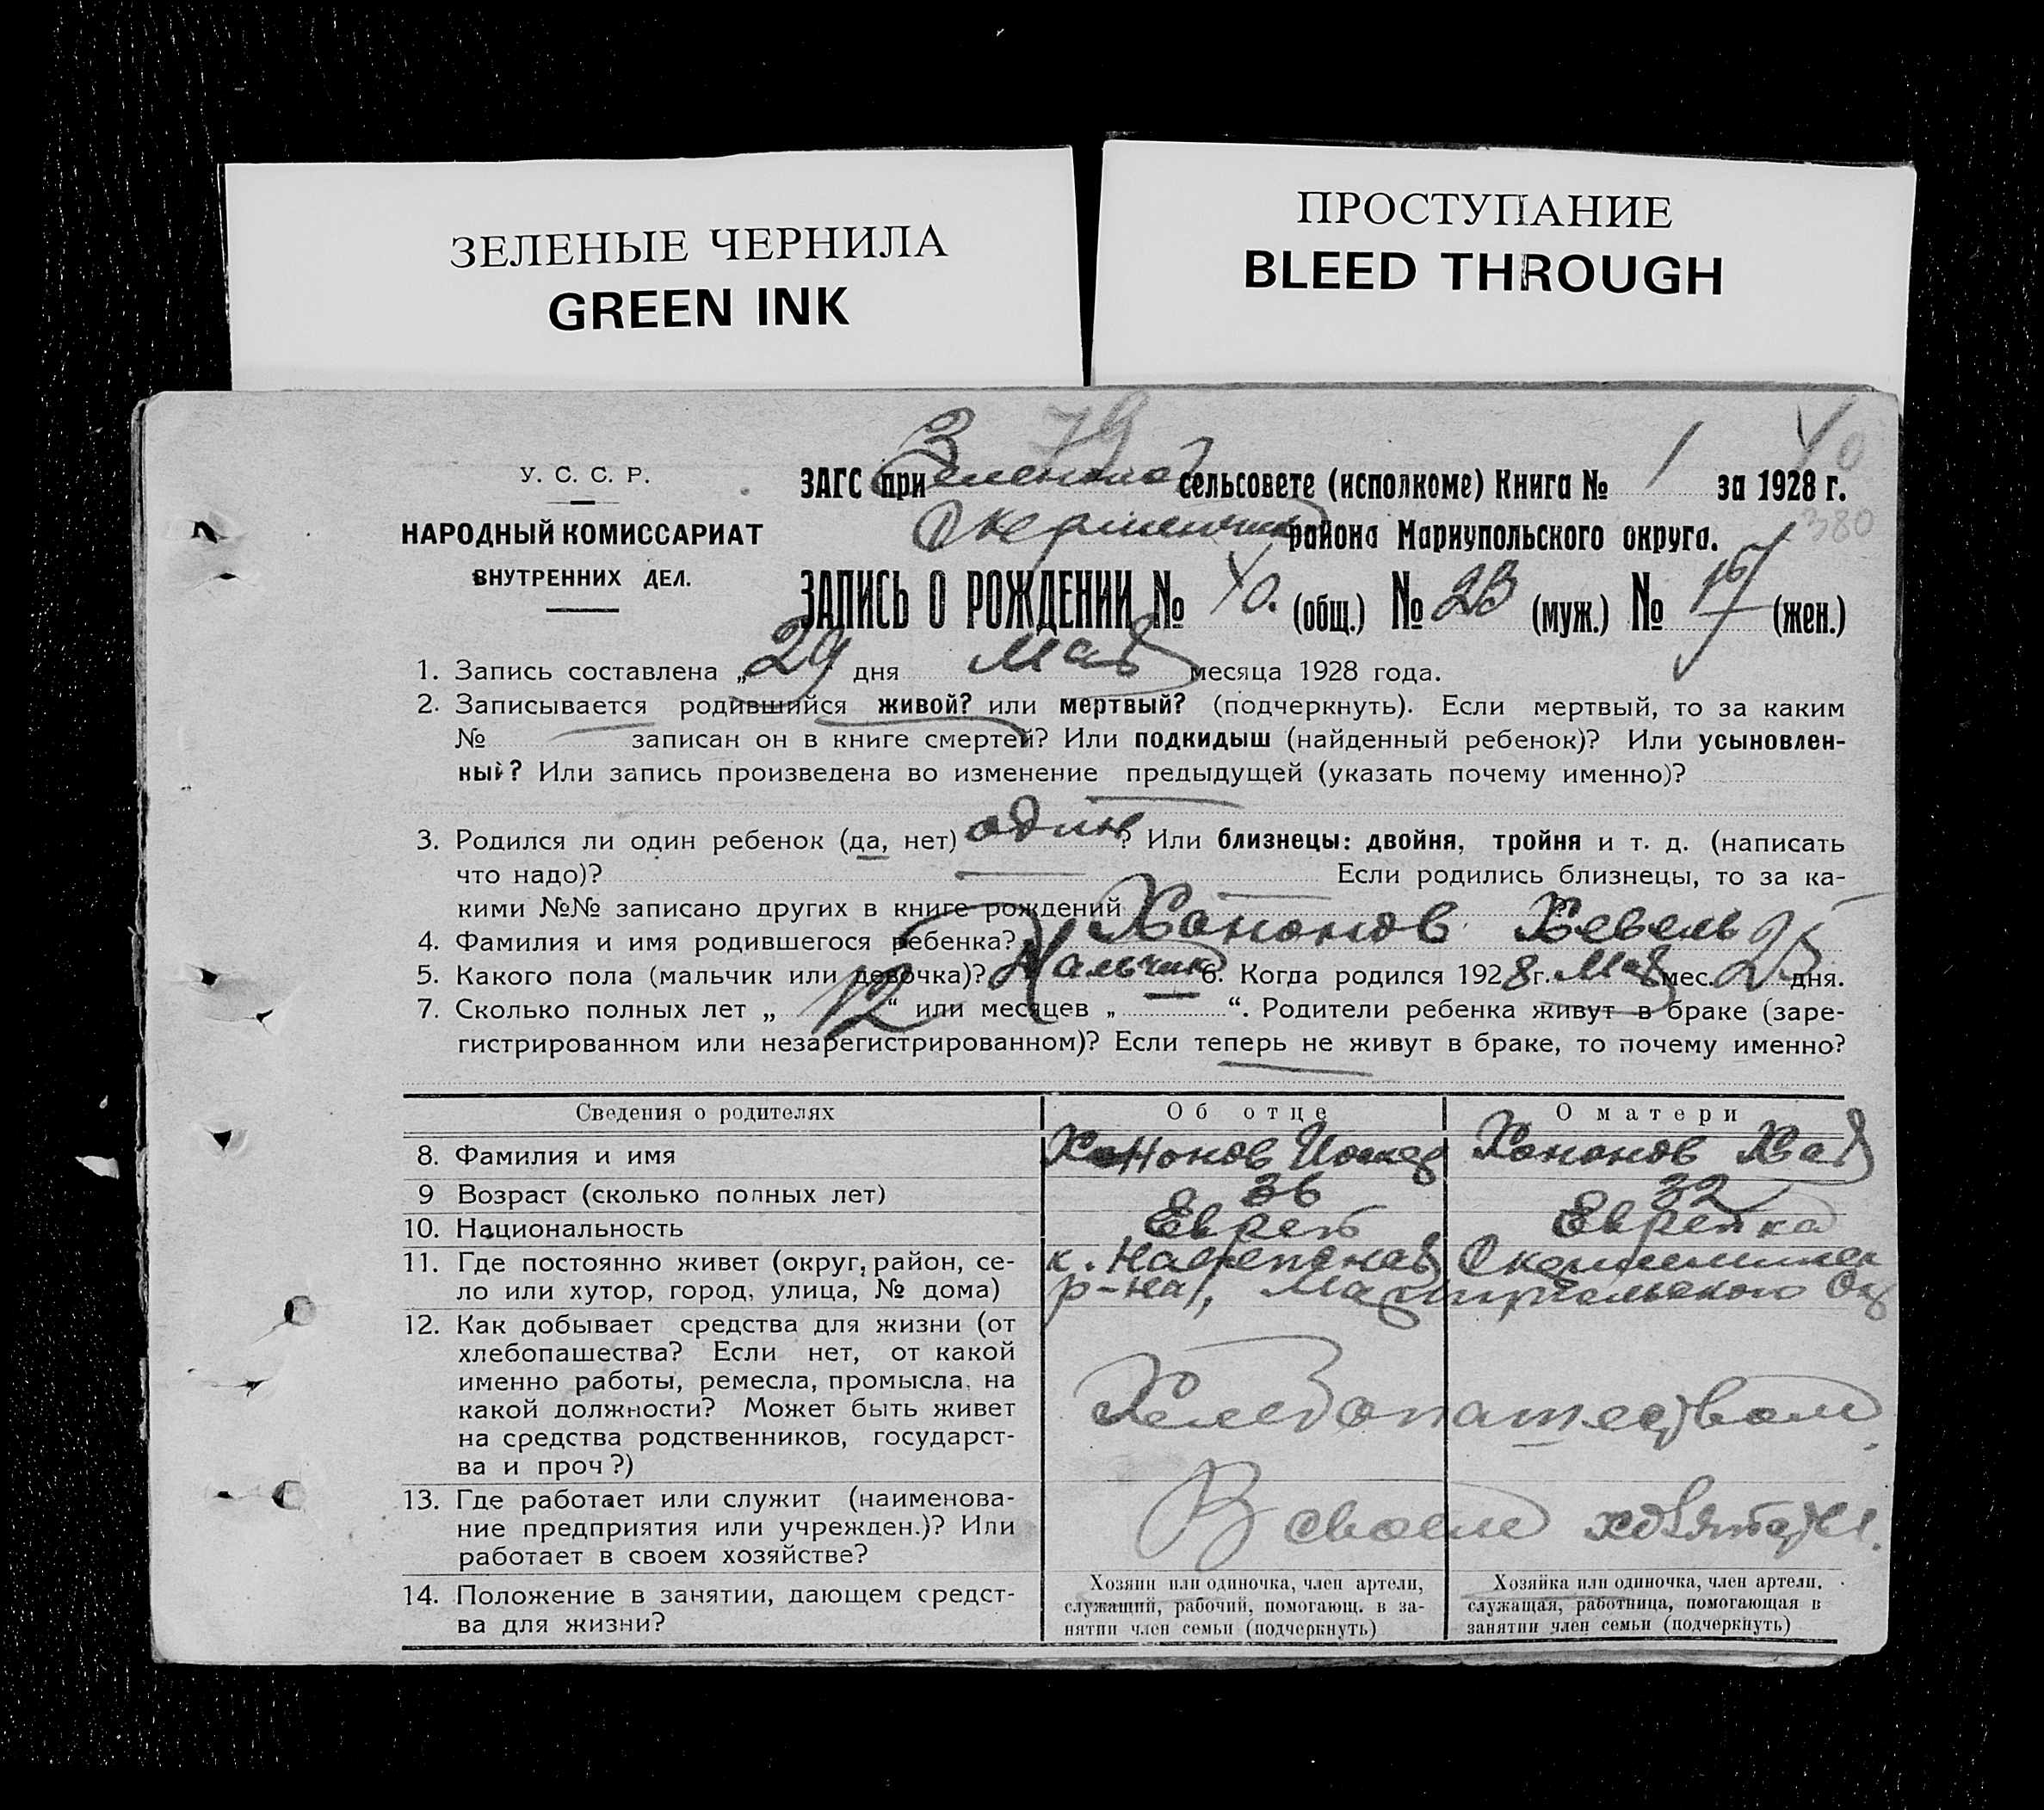 ЗЕЛЕНЫЕ ЧЕРНИЛА
GREEN INK
ПРОСТУПАНИЕ
BLEED THROUGH
79
У. С. С. Р.
НАРОДНЫЙ КОМИССАРИАТ
ВНУТРЕННИХ ДЕЛ.
40
ЗАГС при сельсовете (исполкоме) Книга № 1 за 1928 г.
380
района Мариупольского округа.
ЗАПИСЬ О РОЖДЕНИИ № 40. (общ.) № 23 (муж.) № (жен.)
1. Запись составлена „ 29 дня мая месяца 1928 года.
2. Записывается родившийся живой? или мертвый? (подчеркнуть). Если мертвый, то за каким
№ записан он в книге смертей? Или подкидыш (найденный ребенок)? Или усыновлен-
ный? Или запись произведена во изменение предыдущей (указать почему именно)?
3. Родился ли один ребенок (да, нет) один ? Или близнецы: двойня, тройня и т. д. (написать
что надо)? Если родились близнецы, то за ка-
кими №№ записано других в книге рождений
4. Фамилия и имя родившегося ребенка? Хононов Хевель
5. Какого пола (мальчик или девочка)? Мальчик 6. Когда родился 1928 г. Мая мес. 25 дня.
7. Сколько полных лет „ 12 “ или месяцев „ “. Родители ребенка живут в браке (заре-
гистрированном или незарегистрированном)? Если теперь не живут в браке, то почему именно?
Сведения о родителях Об отце О матери
8. Фамилия и имя Хононов Хононов Хая
9 Возраст (сколько полных лет) 36 32
10. Национальность Еврей Еврейка
11. Где постоянно живет (округ, район, се-
ло или хутор, город, улица, № дома)
р-на, Мариупольского Окр
12. Как добывает средства для жизни (от
хлебопашества? Если нет, от какой
именно работы, ремесла, промысла, на
какой должности? Может быть живет
на средства родственников, государст-
ва и проч ?)
Хлебопашеством
13. Где работает или служит (наименова-
ние предприятия или учрежден.)? Или
работает в своем хозяйстве?
В своем
14. Положение в занятии, дающем средст-
ва для жизни?
Хозяин или одиночка, член артели,
служащий, рабочий, помогающ. в за-
нятии член семьи (подчеркнуть)
Хозяйка или одиночка, член артели,
служащая, работница, помогающая в
занятии член семьи (подчеркнуть)